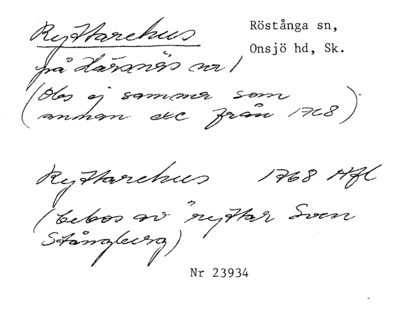 Ryttarehus
Röstånga sn,
Onsjö hd, Sk.
på Härsnäs nr 1
(Obs ej samma som
annan exc från 1768)
Ryttarehus 1768 Hfl
(bebos av "ryttar Sven
Stångberg)
Nr 23934